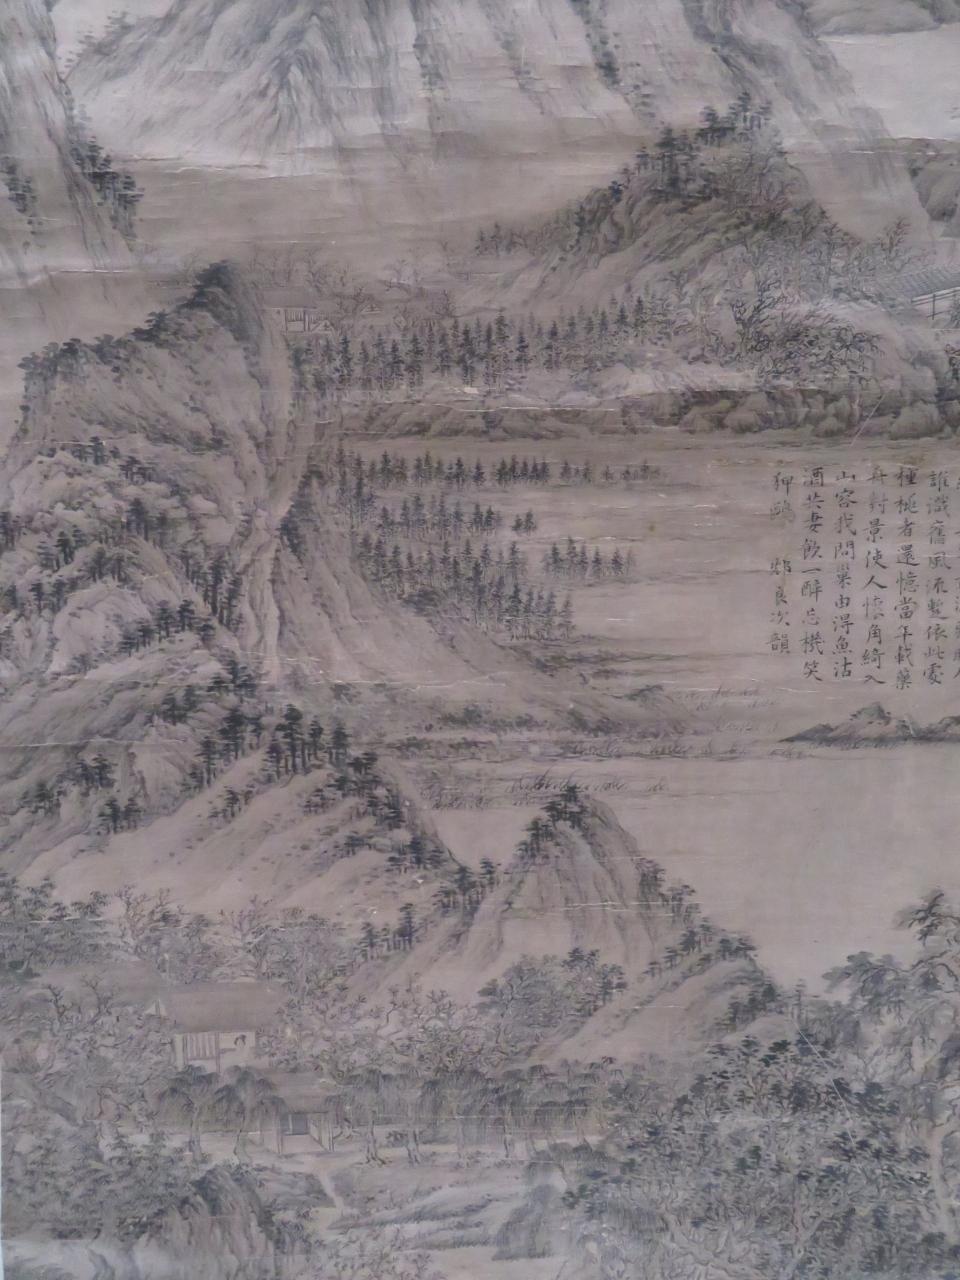 誰識舊風流暫依此處
種桃者還憶當年載藥
舟對景使人懷角綺入
山容我問巢由淂魚沽
酒共妻飲一醉忘機笑
狎鷗 良次韻